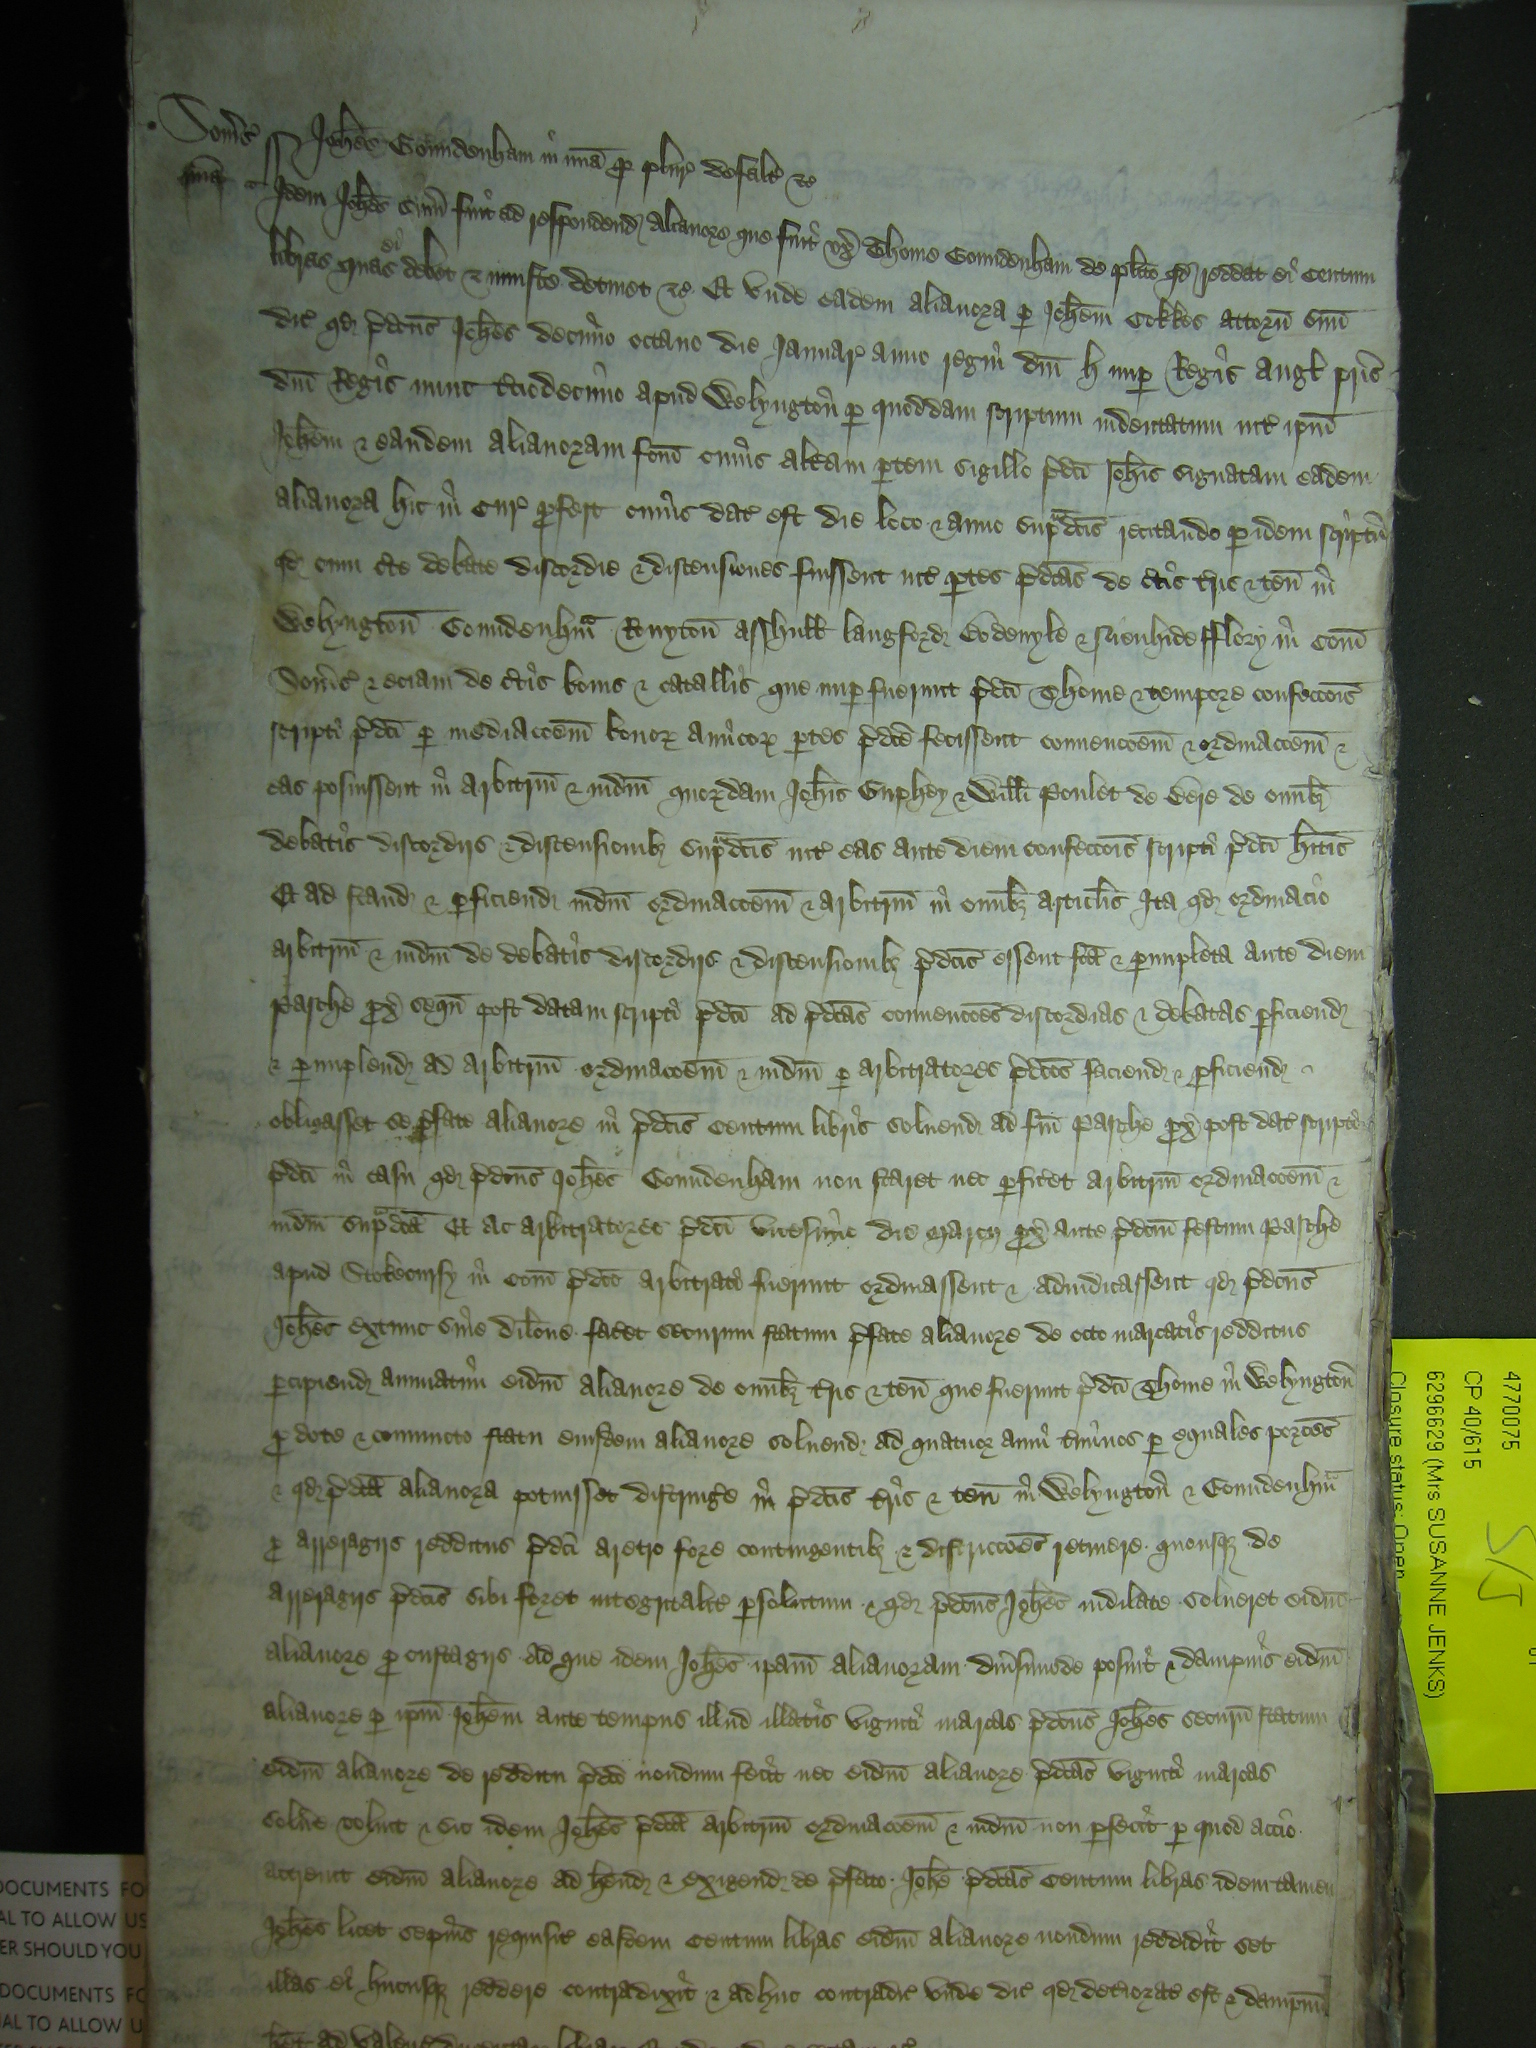 Som's Joh̄es Gounidenham in mīa p̱ plur' defalt' &c
mīa Idem Joh̄es sum̄ fuit ad respondend' Alianore que fuit ux' Thome Gounidenham de pl̄ito qd' reddat ei Centum
libras quas ei debet & iniuste detinet &c Et unde eadem Alianora p̱ Joh̄em Cokkes attorn̄ suū
dic' qd' p̄dcūs Joh̄es decimo octavo die Januar' anno regni dn̄i H nup̱ Regis Angl' pr̄is
dn̄i Regis nunc t'ciodecimo apud Welyngton̄ p̱ quoddam scriptum indentatum int' ipm̄
Joh̄em & eandem Alianoram fc̄m cuius alt'am p̱tem sigillo p̄dc̄i Joh̄is signatam eadem
Alianora hic in Cur' p̱fert cuius dat' est die loco & anno sup̱dc̄is recitando p̱ idem scriptū
qd' cum c'te debate discordie & discensiones fuissent int' p̱tes p̄dc̄as de c'tis t'ris & ten̄ in
Welyngton̄ Gounidenhm̄ Ronyton̄ Asshull' langford' Bodenyle & fflory in Com̄
Som's & eciam de c'tis bonis & catallis que nup̱ fuerunt p̄dc̄i Thome & tempore confecc̄ois
scripti p̄dc̄i p̱ mediacc̄oem̄ bonor' amicor' p̱tes p̄dc̄e fecissent convencc̄oem̄ & ordinacc̄oem̄ &
eas posuissent in arbitriū & iudm̄ quor'dam Joh̄is & Will̄i Poulet de Bere de om̄ib'
debatis discordiis & discensionib' sup̱dc̄is int' eas ante diem confecc̄ois scripti p̄dc̄i h̄itis
Et ad stand' & p̱ficiend' iudm̄ ordinacc̄oem̄ & arbitriū in om̄ib' articlis Ita qd' ordinacio
arbitriū & iudm̄ de debatis discordiis & discensionib' p̄dc̄is essent fc̄a & p̱impleta ante diem
Pasche p̱x' sequn̄ post datam scripti p̄dc̄i ad p̄dc̄as convencc̄oes discordias & debatas p̱ficiend'
& p̱implend' ad arbitriū ordinacc̄oem̄ & iudm̄ p̱ arbitratores p̄dc̄os faciend' & p̱ficiend'
obligasset se p̱fate Alianore in p̄dc̄is Centum libris solvend' ad fm̄ Pasche p̱x' post dat' scripti
p̄dc̄i in casu qd' p̄dcūs Joh̄es Gounidenham non staret nec p̱fic'et arbitriū ordinacc̄oem̄ &
iudm̄ sup̱dc̄a Et ac arbitratores p̄dc̄i vicesimo die Marcii p̱x' ante p̄dcm̄ festum Pasche
apud Stokecursy in Com̄ p̄dc̄o arbitrati fuerunt ordinassent & adiudicassent qd' p̄dcūs
Joh̄es extunc sine dil̄one fac'et securum statum p̄fate Alianore de octo marcatis redditus
p̱cipiend' annuatim eidm̄ Alianore de om̄ib' t'ris & ten̄ que fuerunt p̄dc̄i Thome in Welyngton̄
p̱ dote & coniuncto statu eiusdem Alianore solvend' ad quatuor anni t'minos p̱ equales porc̄oēs
& qd' p̄dc̄a Alianora potuisset distring'e in p̄dc̄is t'ris & ten̄ in Welyngton̄ & Gounidenhm̄
p̱ arreragiis redditus p̄dc̄i aretro fore contingentib' & districc̄oēs retinere quousq' de
arreragiis p̄dc̄is sibi foret integralit' p̱solutum & qd' p̄dcūs Joh̄es indilate solveret eidm̄
Alianore p̱ custagiis ad que idem Joh̄es ipam̄ Alianoram div'simode posuit & dampnis eidm̄
Alianore p̱ ipm̄ Joh̄em ante tempus illud illatis viginti marcas p̄dcūs Joh̄es securū statum
eidm̄ Alianore de redditu p̄dc̄o nondum fecit nec eidm̄ Alianore p̄dc̄as viginti marcas
solv'e voluit & sic idem Joh̄es p̄dc̄a arbitriū ordinacc̄oem̄ & iudm̄ non p̱fecit p̱ quod accio
accrevit eidm̄ Alianore ad h̄end' & exigend' de p̄fato Joh̄e p̄dc̄as Centum libras idem tamen
Joh̄es licet sepius requisit' easdem Centum libras eidm̄ Alianore nondum reddidit set
illas ei hucusq' reddere contradixit & adhuc contradic' unde dic' qd' deteriorat' est & dampnū
h̄et ad valenc'
4770075
CP 40/615
6296629 (Mrs SUSANNE JENKS)
Closure status: Open
S/J
DOCUMENTS FO
AL TO ALLOW US
ER SHOULD YOU
DOCUMENTS FO
IAL TO ALLOW U